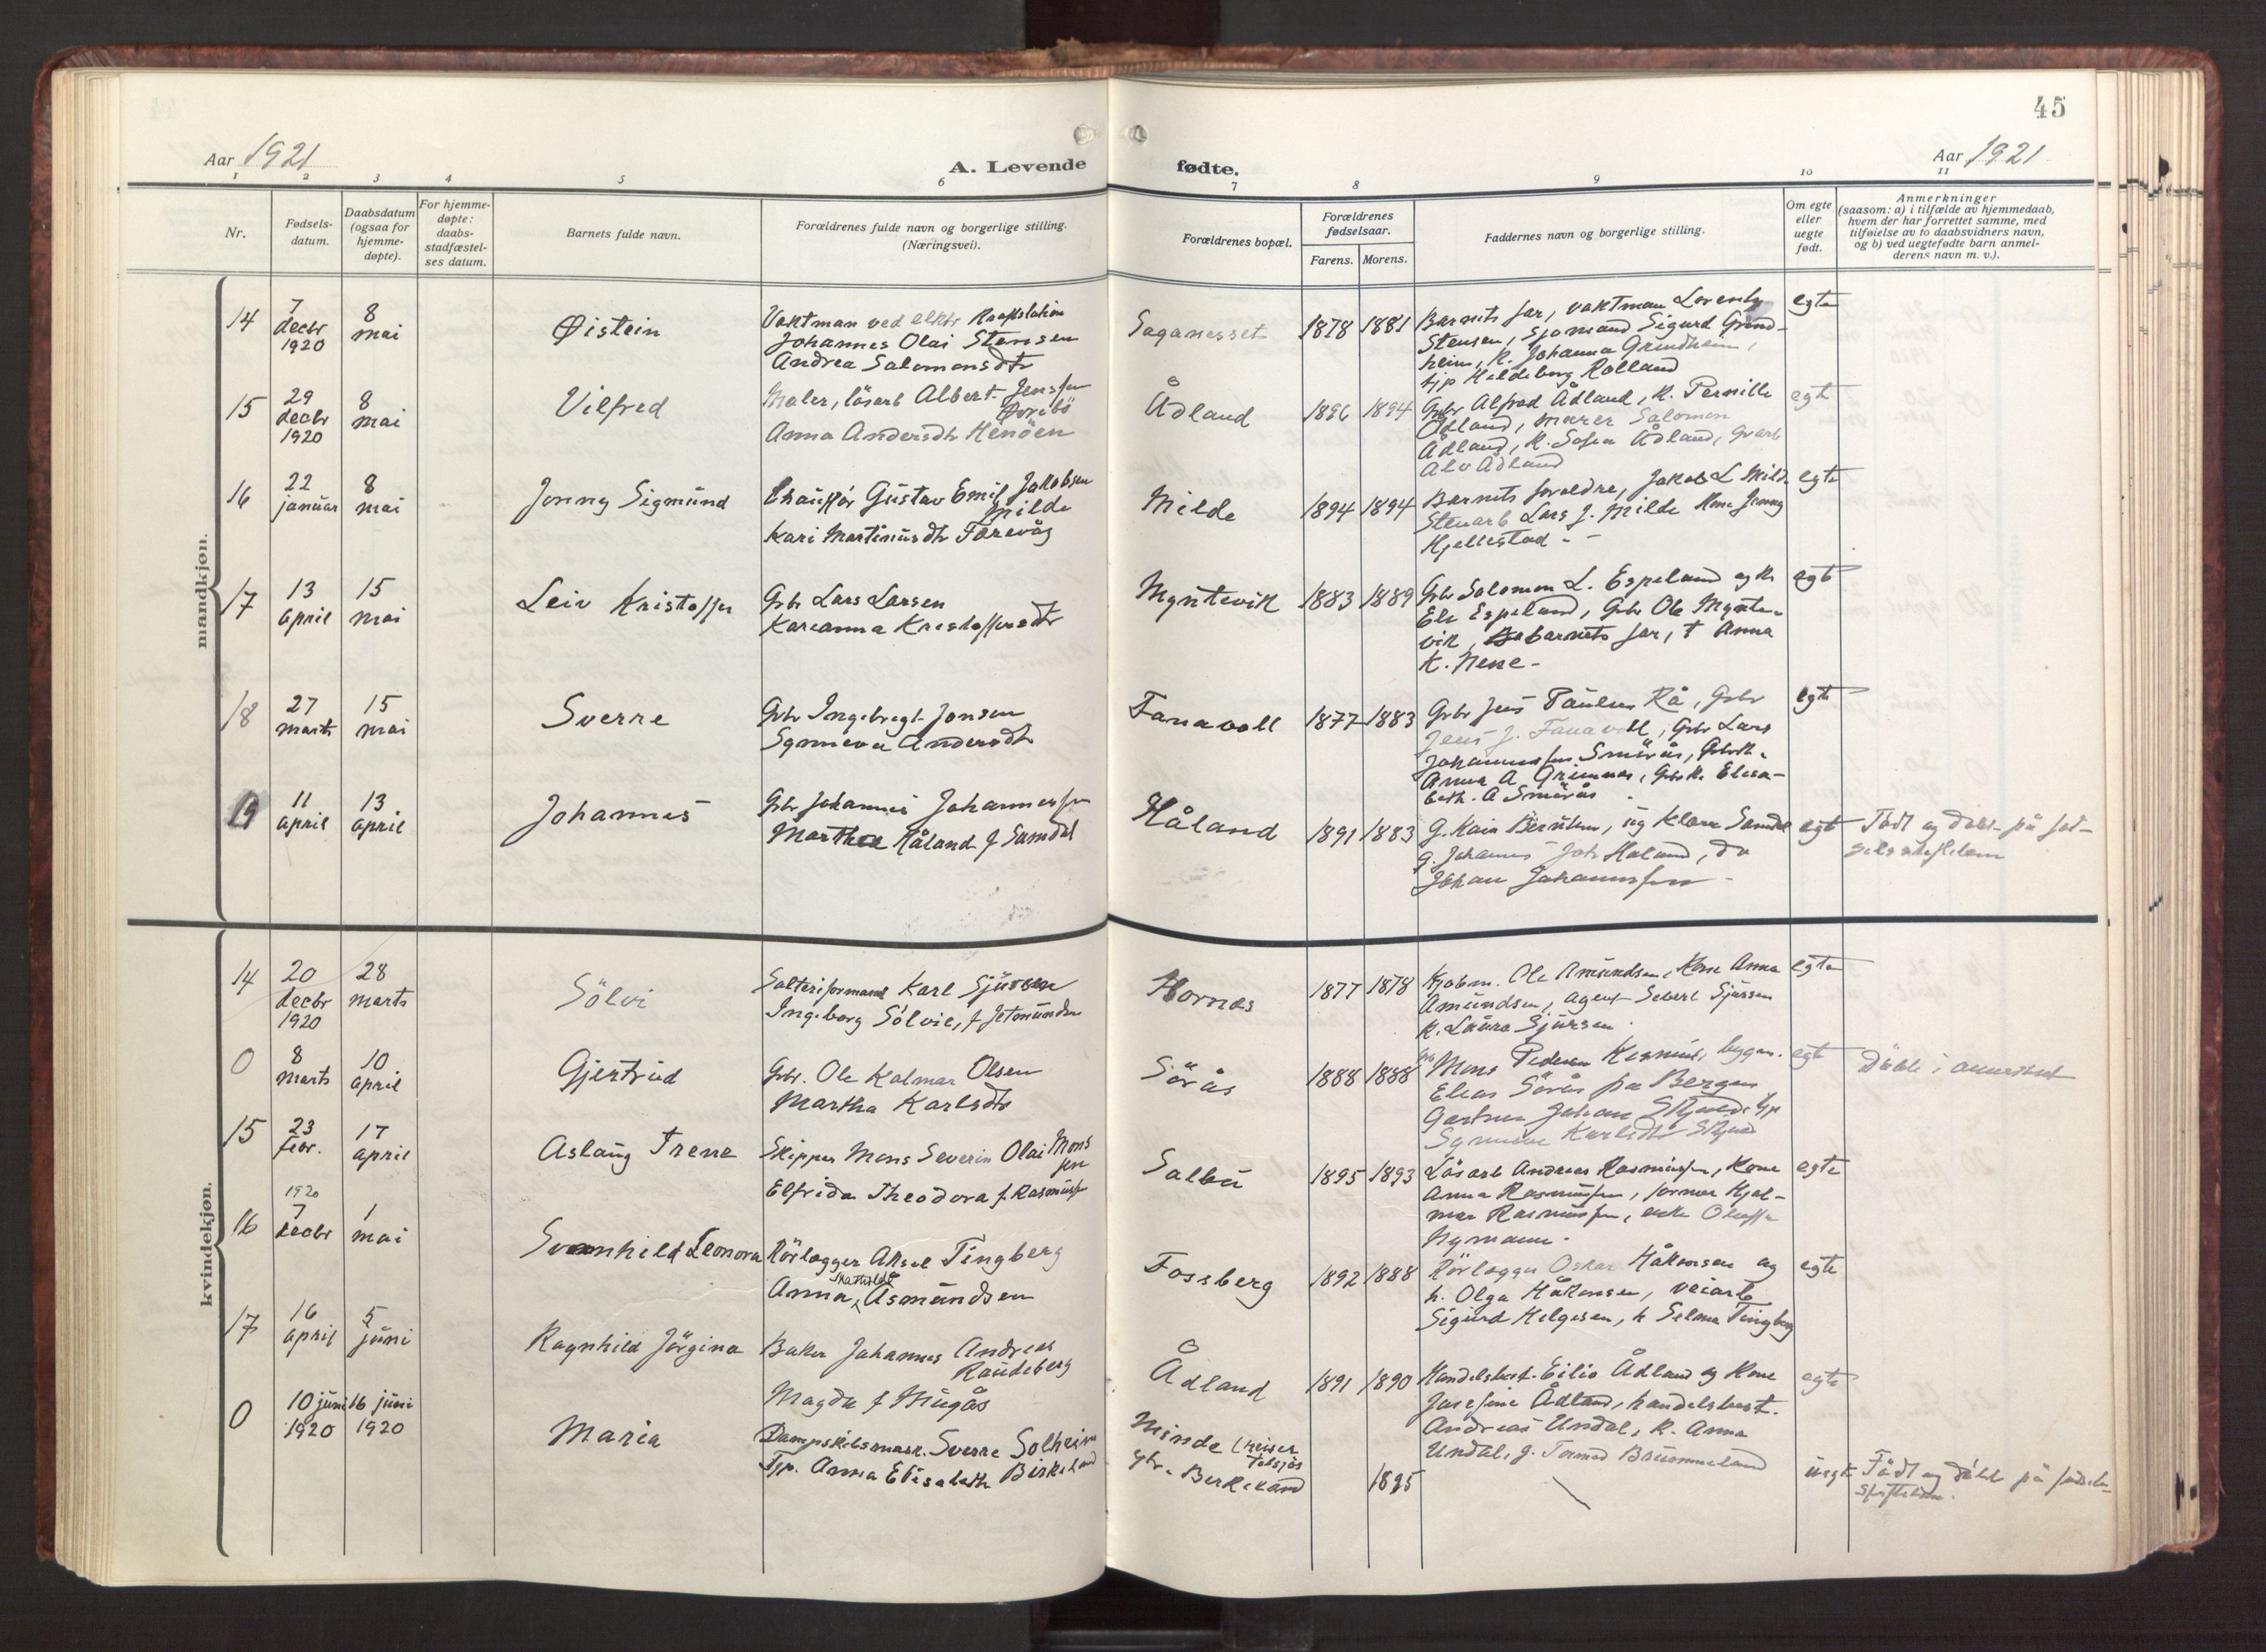 45
Aar 1921
A. Levende
fødte.
Aar 1921
1 2 3 4 5 6 7 8 9 10 11
Nr.
Fødsels-
datum.
Daabsdatum
(ogsaa for
hjemme-
døpte).
For hjemme-
døpte:
daabs-
stadfæstel-
ses datum.
Barnets fulde navn.
Forældrenes fulde navn og borgerlige stilling.
(Næringsvei).
Forældrenes bopæl.
Forældrenes
fødselsaar.
Farens. Morens.
Faddernes navn og borgerlige stilling.
Om egte
eller
uegte
født.
Anmerkninger
(saasom: a) i tilfælde av hjemmedaab,
hvem der har forrettet samme, med
tilføielse av to daabsvidners navn,
og b) ved uegtefødte barn anmel-
derens navn m. v.).
mandkjøn.
14
7
decbr
1920
8
mai
Øistein
Vaktman ved elktr
Johannes Olai Stensen
Andrea Salomonsdtr
Saganesset
1878 1881
Barnets far, vaktman
Stensen, sjømand Sigurd Grind-
heim, k. Johanna Grindheim,
tjp Hildeborg Rolland
egte
15
29
decbr
1920
8
mai
Vilfred
Maler, lösarb Albert Jenssen
Anna Andersdtr Henöen
Ådland
1896 1894
Gbr Alfred Ådland, k. Pernille
Ådland, murer Salomon
Ådland, k. Sofia Ådland, gvarb
Alv Ådland
egt
16
22
januar
8
mai
Jonny Sigmund
Chauffør Gustav Emil Jakobsen
Milde
Kari Martinusdtr Förevåg
Milde
1894 1894
Barnets foreldre, Jakob L Milde
Stenarb Lars J. Milde Kone Jenny
Hjellestad -
egte
17
13
april
15
mai
Leiv Kristoffer
Gbr Lars Larsen
Karianna Kristoffersdtr
Myntevik
1883 1889
Gbr Salomon L. Espeland og k.
Espeland, Gbr Ole Mynte-
vik, barnets far, t Anna
K. Nese -
egte
18
27
marts
15
mai
Sverre
Gbr Ingebregt Jonsen
Synneva Andersdtr
Fanavoll
1877 1883
Gbr Jens Paulsen Rå, Gbr
Jens J. Fanavoll, Gbr Lars
Johannessen Smörås, Gbrk.
Anna A Grimnes, Gbrk. Elisa-
beth. A Smörås
egte
19
11
april
13
april
Johannes
Gbr Johannes Johannessen
Marthea Håland f Samdal
Håland
1891 1883
G. Kaia, ug Klara Samdal
g. Johannes Joh Håland, do
Johan Johannessen -
egt
Födt og döbt på föd-
kvindekjøn.
14
20
decbr
1920
28
marts
Sölvi
Salteriformand Karl Sjursen
Ingeborg Sölvie, f Jetmundsen
Hornæs
1877 1878
Kjøbm. Ole Amundsen, Kone Anna
Amundsen, agent Severl Sjursen
k. Laura Sjursen
egte
0
8
marts
10
april
Gjertrud
Gbr. Ole Kalmar Olsen
Martha Karlsdtr
Sörås
1888 1888
Mons Pedersen
Elias Sörås fra Bergen
Gartner Johan
Synneve Karlsdtr
egt
Döbt i annetsted
15
23
febr.
17
april
Aslaug Irene
Skipper Mons Severin Olai Mons
sen
Elfrida Theodora f. Rasmussen
Salbu
1895 1893
Lösarb Andreas Rasmussen, Kone
Anna Rasmussen, former Hjal-
mar Rasmussen, enke
Nymann -
egte
16
1920
7
decbr
1
mai
Svanhild Leonora
Rörlegger Aksel Tingberg
Mathilde
Anna Asmundsen
Fossberg
1892 1888
Rörlegger Oskar Håkonsen og
h. Olga Håkonsen, veiarb
Sigurd Helgesen, h Selma Tingberg
egte
17
16
april
5
juni
Ragnhild Jörgina
Baker Johannes Andreas
Raudeberg
Magda f Haugås
Ådland
1891 1890
Handelsbest. Eiliv Ådland og Kone
Josefine Ådland, handelsbest.
Andreas Undal, k. Anna
Undal, g. Tormod
egte
0
10 juni
1920
16 juni
1920
Maria
Dampskibsmask. Sverre Solheim
Tjp. Anna Elisabeth Birkeland
Minde
Birkeland
1895
uegt
Födt og döbt på födsels-
stiftelsen.